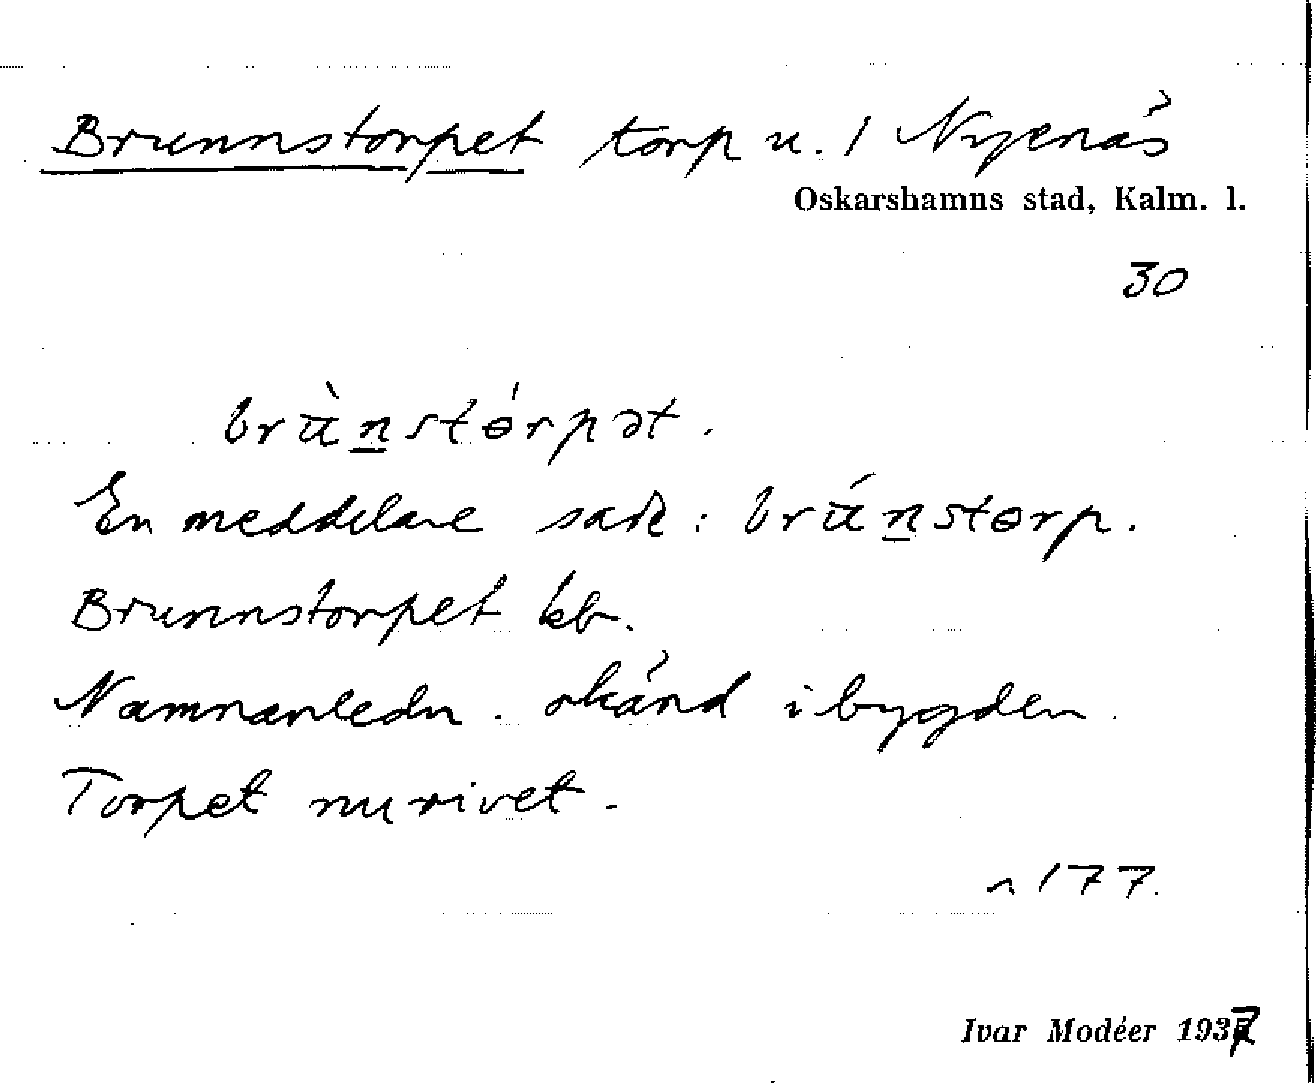 Brunnstorpet torp u. 1 Nyenäs
Oskarshamns stad, Kalm. l.
30
brùn̲stórpət.
En meddelare sade: brún̲storp.
Brunnstorpet kb.
Namnanledn. okänd i bygden.
Torpet nu rivet.
n 177.
Ivar Modéer 1937